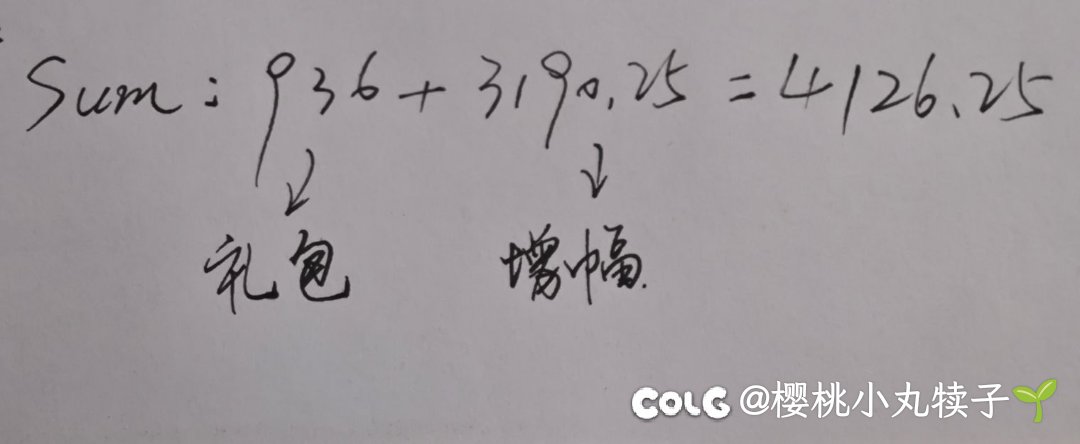 Sum: 936 + 3190.25 = 4126.25
↓ ↓
礼包 增幅
COLG @樱桃小丸犊子🌱